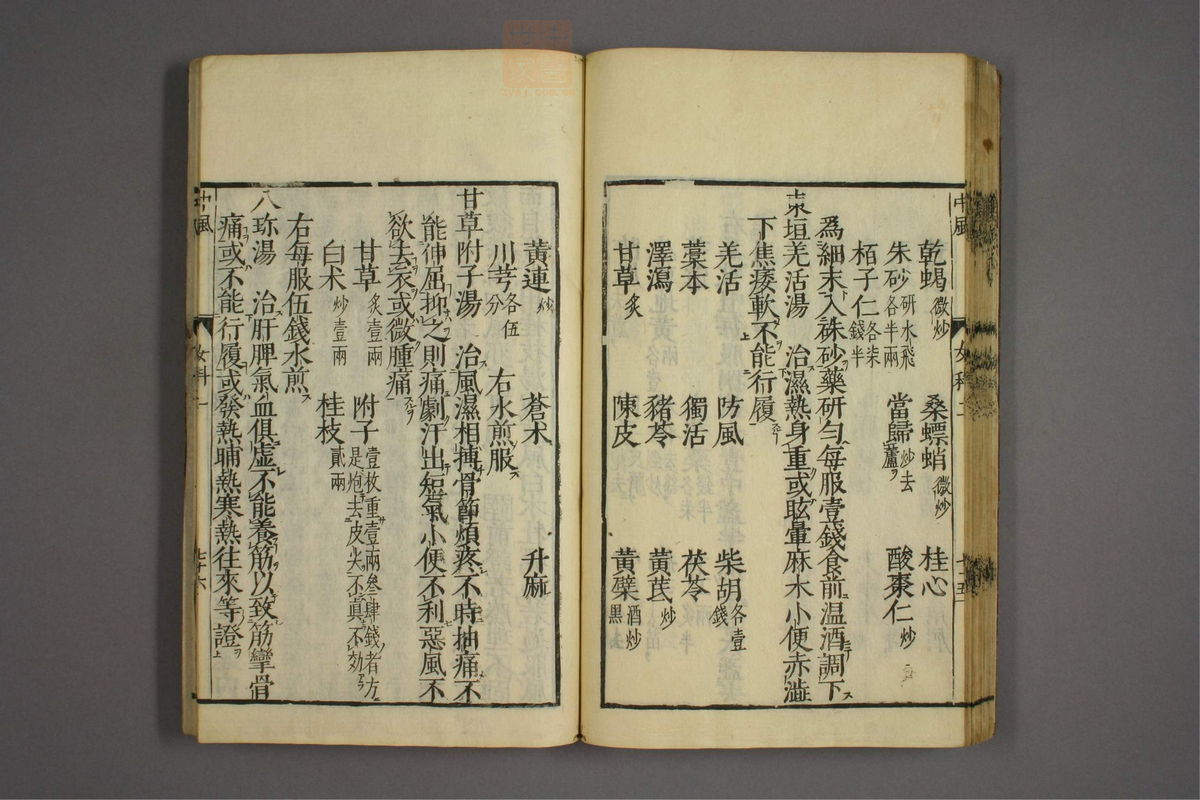 乾蝎微炒 桑螵蛸微炒 桂心
朱砂研水飛各半兩 當歸炒去蘆ヲ 酸棗仁炒
栢子仁各柒錢半
爲細末入硃砂藥研勻每服壹錢食前温酒調下
東垣羌活湯 治濕熱身重或眩暈麻木小便赤澁
下焦痿軟不能行履
羌活 防風 柴胡各壹錢
藁本 獨活 茯苓
澤瀉 豬苓 黃芪炒
甘草炙 陳皮 黃檗酒炒黑
中風 女科二
黃連炒 蒼朮 升麻
川芎各伍分 右水煎服
甘草附子湯 治風濕相搏骨節煩疼不時抽痛不
能伸屈抑之則痛劇汗出短氣小便不利惡風不
欲去衣或微腫痛
甘草炙壹兩 附子壹枚重壹兩叁肆錢者方是炮去皮尖不眞不効
白朮炒壹兩 桂枝貳兩
右每服伍錢水煎
八珎湯 治肝脾氣血俱虛不能養筋以致筋攣骨
痛或不能行履或發熱晡熱寒熱往來等證
中風 女科一 七十六